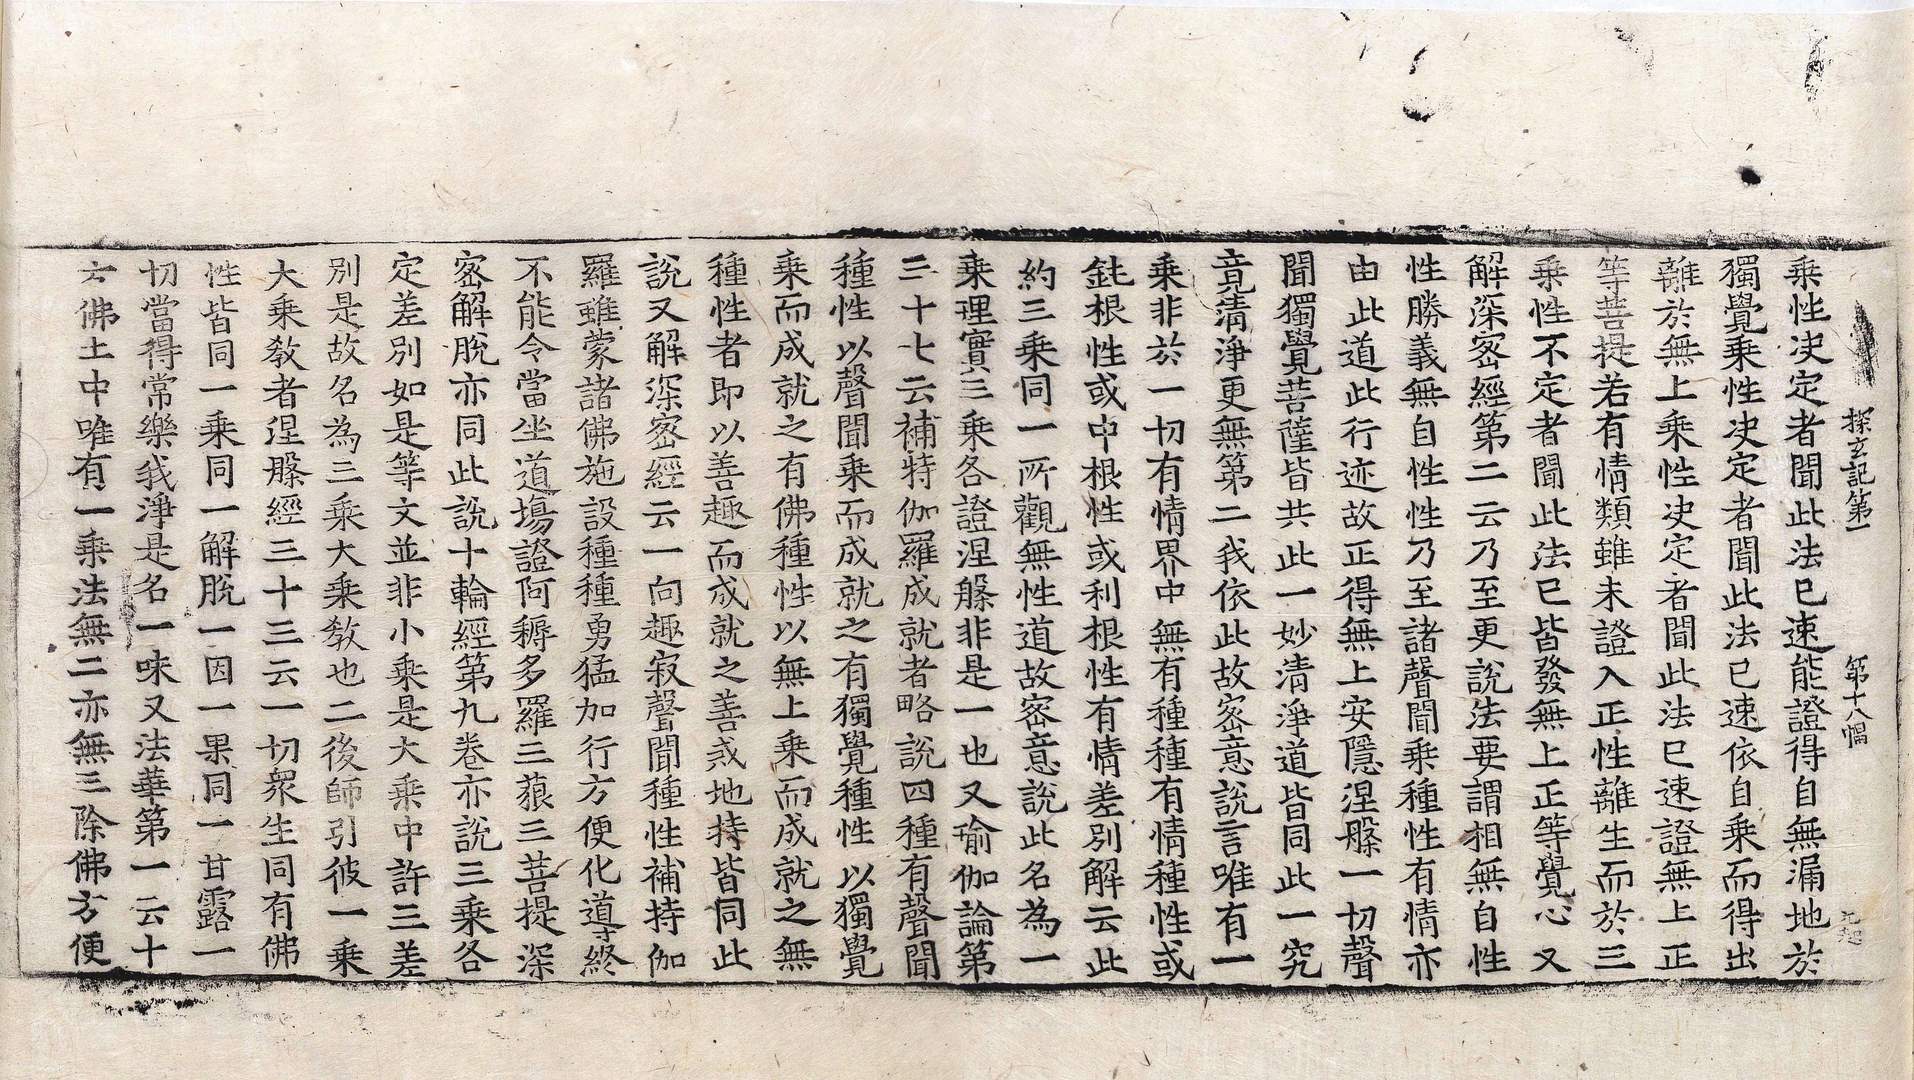 探玄記第一 第十八幅 元起
乘性决定者聞此法已速能證得自無漏地於
獨覺乘性决定者聞此法已速依自乘而得出
離於無上乘性决定者聞此法已速證無上正
等菩提若有情類雖未證入正性離生而於三
乘性不定者聞此法已皆發無上正等覺心又
解深密經第二云乃至更說法要謂相無自性
性勝義無自性性乃至諸聲聞乘種性有情亦
由此道此行迹故正得無上安隱涅槃一切聲
聞獨覺菩薩皆共此一妙清淨道皆同此一究
竟清淨更無第二我依此故密意說言唯有一
乘非於一切有情界中無有種種有情種性或
鈍根性或中根性或利根性有情差別解云此
約三乘同一所觀無性道故密意說此名為一
乘理實三乘各證涅槃非是一也又瑜伽論第
二十七云補特伽羅成就者略說四種有聲聞
種性以聲聞乘而成就之有獨覺種性以獨覺
乘而成就之有佛種性以無上乘而成就之無
種性者即以善趣而成就之善戒地持皆同此
說又解深密經云一向趣寂聲聞種性補特伽
羅雖蒙諸佛施設種種勇猛加行方便化導終
不能令當坐道場證阿耨多羅三藐三菩提深
密解脫亦同此說十輪經第九卷亦說三乘各
定差別如是等文並非小乘是大乘中許三差
別是故名為三乘大乘教也二後師引彼一乘
大乘教者涅槃經三十三云一切衆生同有佛
性皆同一乘同一解脫一因一果同一甘露一
切當得常樂我淨是名一味又法華第一云十
方佛土中唯有一乘法無二亦無三除佛方便